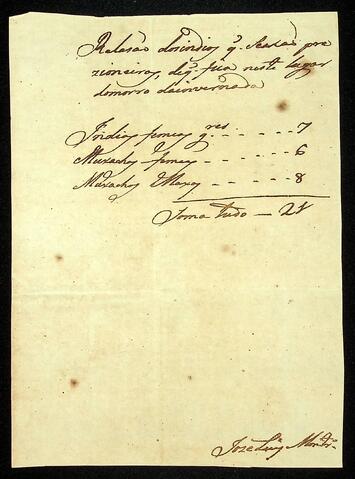 Relasão dos indios q. Seaxão pre
zioneiros, de q. fica neste lugar
domorro da invernada
Indias femeas gres - - - - - 7
Muxachos femeas - - - - - 6
Muxachos Maxos - - - - - 8
Soma tudo - 21
Joze Luis